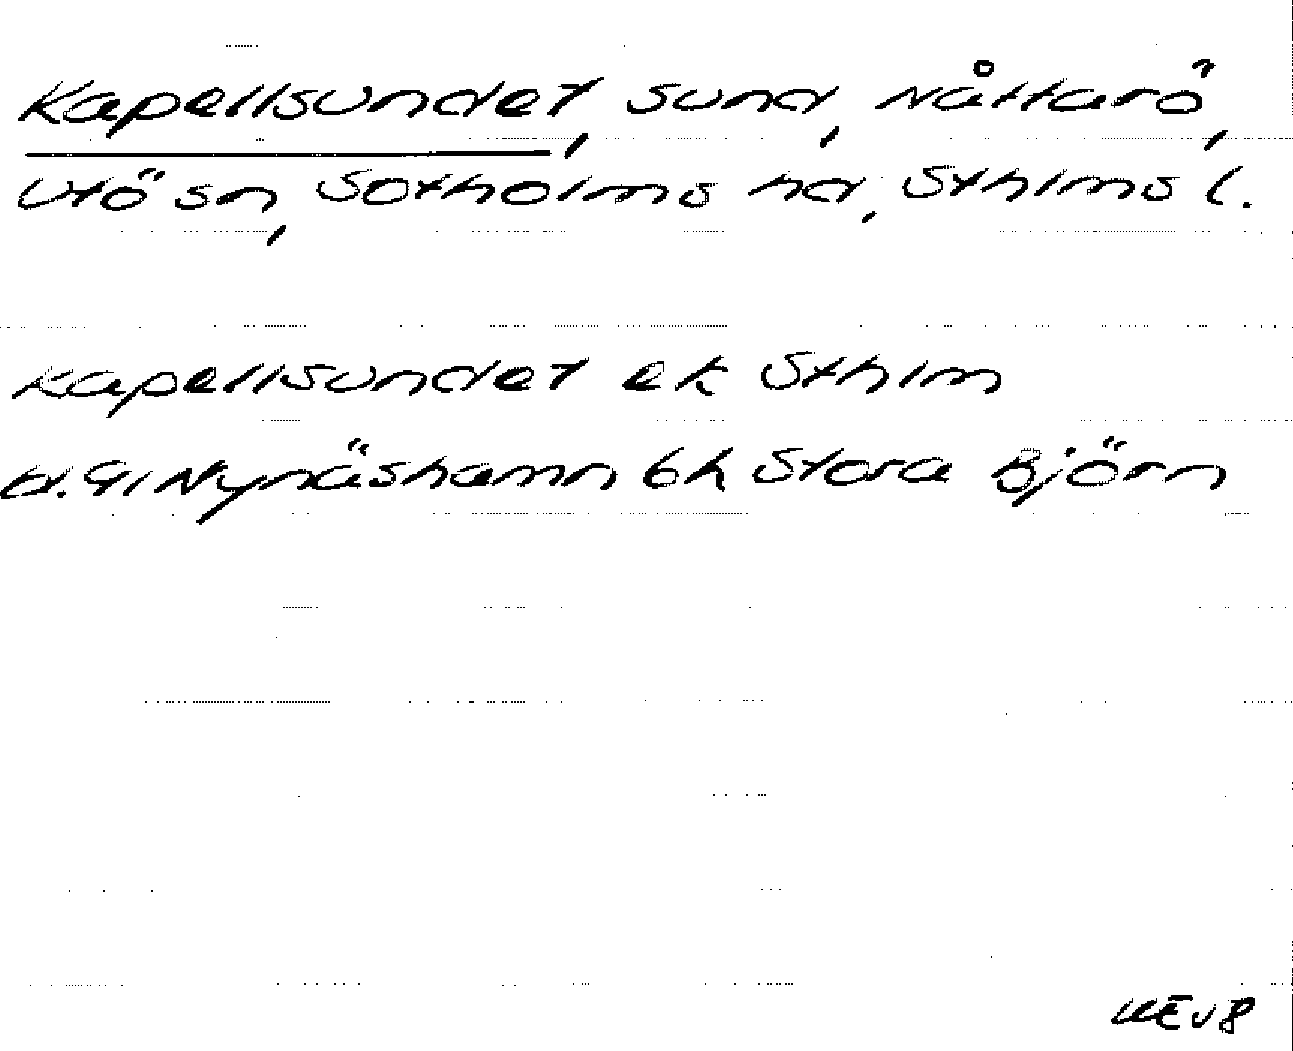 Kapellsundet, sund, Nåttarö,
Utö sn, Sotholms hd, Sthlms l.
Kapellsundet ek Sthlm
bl. 91 Nynäshamn 6h Stora Björn